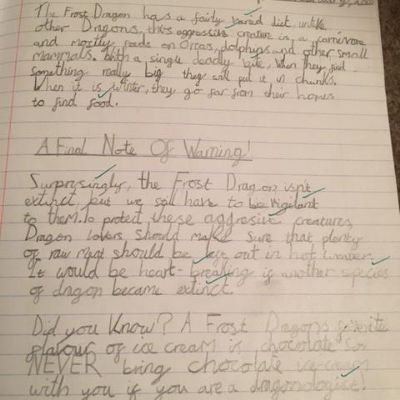 The Frost Dragon has a fairly varied diet unlike
other Dragons, this aggressive creature is a carnivore
and mostly feeds on Orcas, dolphins and other small
mammals. With a single deadly bite, When they find
something really big they will put it in chunks.
When it is Winter, they go far from their homes
to find food.
A Final Note Of Warning!
Surprysingly, the Frost Dragon isn't
extinct but we still have to be vigilant
to them. To protect these aggresive creatures,
Dragon lovers should make sure that plenty
of raw meat should be left out in hot
It would be heart-breaking if another species
of dragon became extinct.
Did you Know? A Frost Dragons favourite
flavour of ice cream is chocolate so
NEVER bring chocolate icecream
with you if you are a dragonologist!